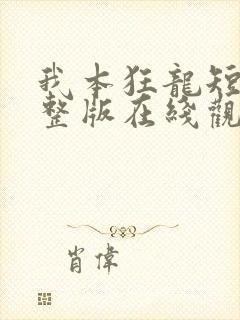 我本狂龍短
整版在綫觀
肖偉